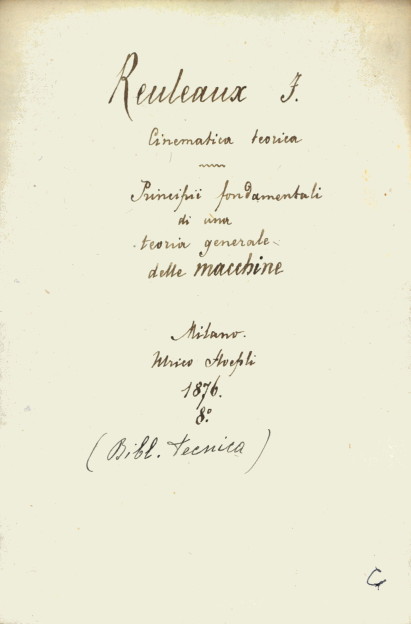 Reuleaux F.
Cinematica teorica
Principii fondamentali
di una
teoria generale
delle macchine
Milano.
Ulrico Hoepli
1876.
8.º
(Bibl. Tecnica)
C